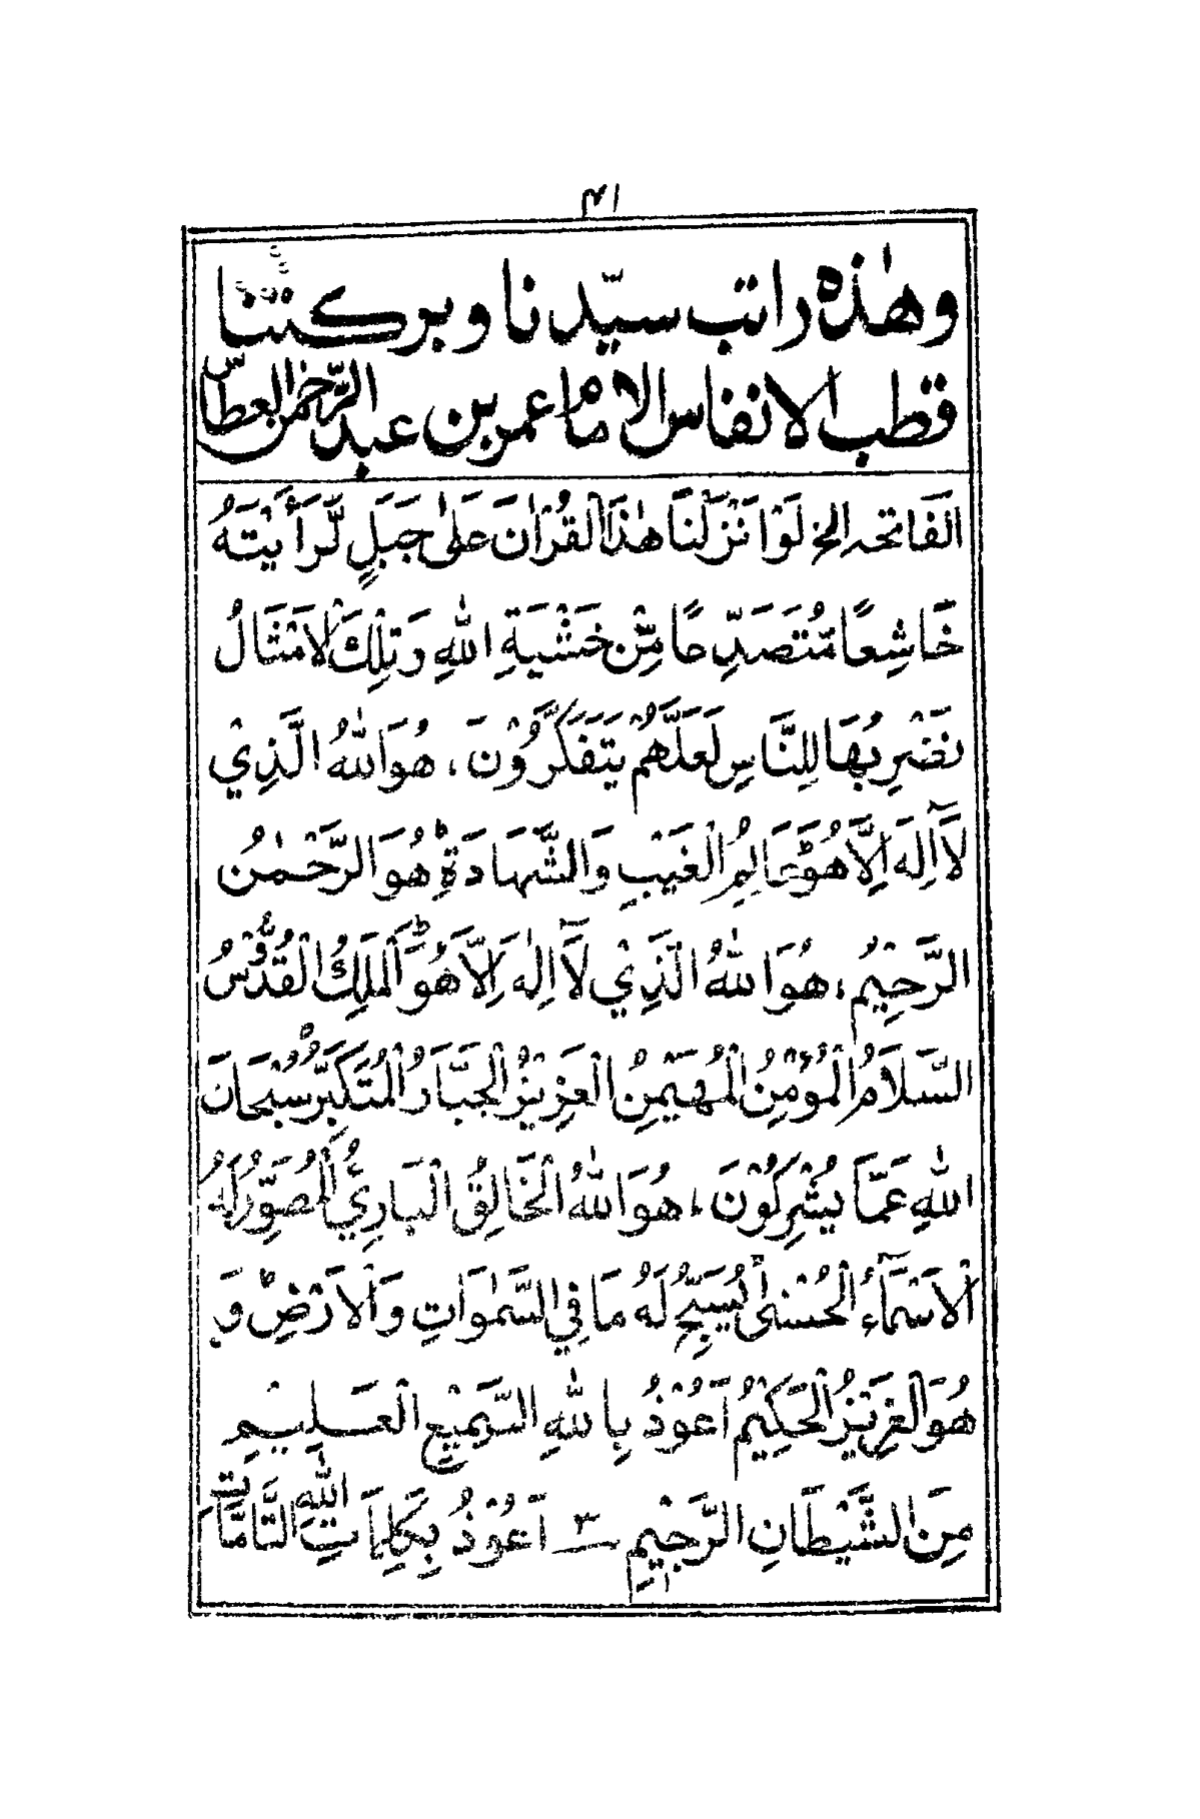 ۴۱
وهٰذه راتب سيّدنا وبركتنا
قطب الانفاس الامام عمر بن عبد الرّحمٰن العطاّس
اَلفَاتحہ الخ لَوْاَنْزَلْنَا هٰذَا الْقُرْاٰنَ عَلٰى جَبَلٍ لَّرَأَيْتَهُ
خَاشِعًا مُّتَصَدِّعًا مِّنْ خَشْيَةِ اللهِ وَتِلْكَ الْاَمْثَالُ
نَضْرِبُهَا لِلنَّاسِ لَعَلَّهُمْ يَتَفَكَّرُوْنَ، هُوَاللهُ الَّذِيْ
لَآاِلٰهَ اِلَّاهُوَ عَالِمُ الْغَيْبِ وَالشَّهَادَةِ ط هُوَالرَّحْمٰنُ
الرَّحِيْمُ، هُوَاللهُ الَّذِيْ لَآاِلٰهَ اِلَّاهُوَ ط اَلْمَلِكُ الْقُدُّوْسُ
السَّلَامُ الْمُؤْمِنُ الْمُهَيْمِنُ الْعَزِيْزُ الْجَبَّارُ الْمُتَكَبِّرُ سُبْحَانَ
اللهِ عَمَّا يُشْرِكُوْنَ، هُوَاللهُ الْخَالِقُ الْبَارِئُ الْمُصَوِّرُ لَهُ
الْاَسْمَآءُ الْحُسْنٰى يُسَبِّحُ لَهُ مَا فِي السَّمٰوَاتِ وَالْاَرْضِ ط وَ
هُوَالْعَزِيْزُ الْحَكِيْمُ اَعُوْذُ بِاللهِ السَّمِيْعِ الْعَلِيْمِ
مِنَ الشَّيْطَانِ الرَّجِيْمِ ٣ اَعُوْذُ بِكَلِمَاتِ اللهِ التَّامَّاتِ